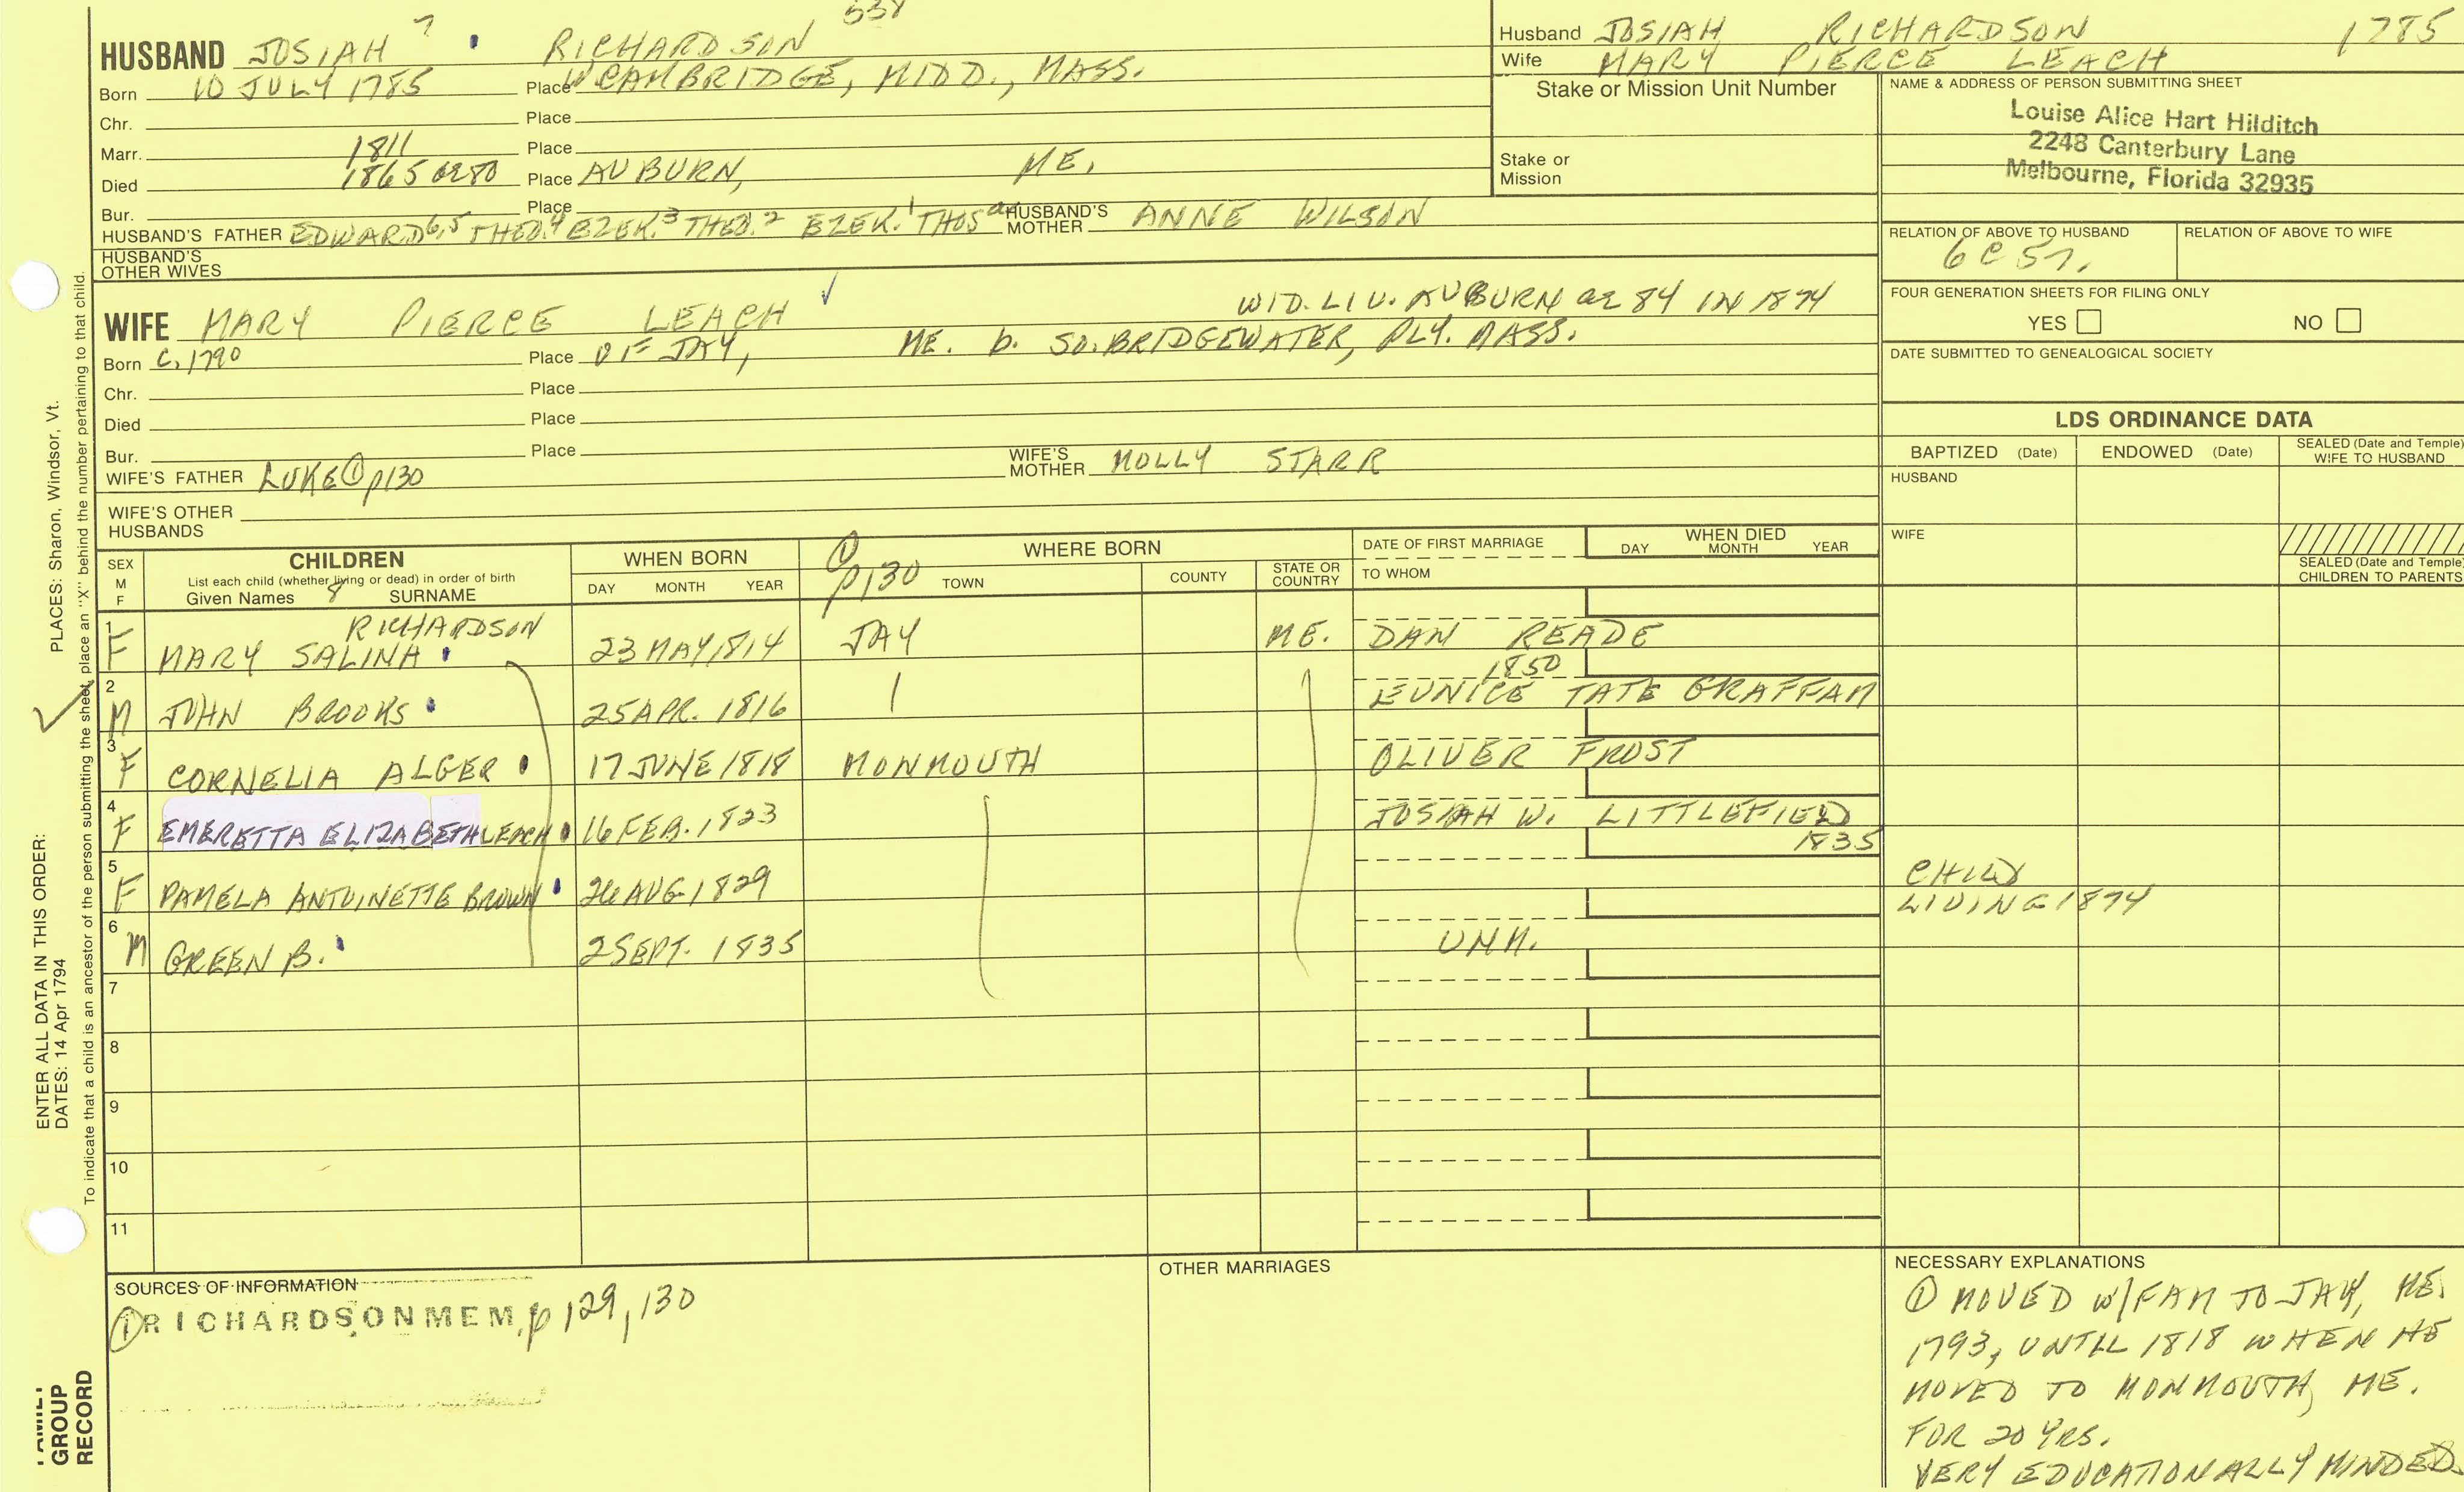 538
HUSBAND JOSIAH 7 RICHARDSON
Born 10 JULY 1785 Place W CAMBRIDGE, MIDD., MASS.
Chr. Place
Marr. 1811 Place
Died 1865 ae 80 Place AUBURN, ME.
Bur. Place
HUSBAND'S FATHER EDWARD 6,5 THEO. 4 EZEK. 3 THEO. 2 EZEK. 1 THOS HUSBAND'S MOTHER ANNE WILSON
HUSBAND'S OTHER WIVES
WIFE MARY PIERCE LEACH ✓ WID. LIV. AUBURN ae 84 IN 1874
Born C. 1790 Place OF JAY, ME. b. SO. BRIDGEWATER, PLY. MASS.
Chr. Place
Died Place
Bur. Place
WIFE'S FATHER LUKE ① p130 WIFE'S MOTHER MOLLY STARR
WIFE'S OTHER HUSBANDS
Husband JOSIAH RICHARDSON 1785
Wife MARY PIERCE LEACH
Stake or Mission Unit Number
Stake or Mission
NAME & ADDRESS OF PERSON SUBMITTING SHEET
Louise Alice Hart Hilditch
2248 Canterbury Lane
Melbourne, Florida 32935
RELATION OF ABOVE TO HUSBAND RELATION OF ABOVE TO WIFE
6C 5r.
FOUR GENERATION SHEETS FOR FILING ONLY
YES NO
DATE SUBMITTED TO GENEALOGICAL SOCIETY
LDS ORDINANCE DATA
BAPTIZED (Date) ENDOWED (Date) SEALED (Date and Temple) WIFE TO HUSBAND
HUSBAND
WIFE
SEALED (Date and Temple) CHILDREN TO PARENTS
SEX M F
CHILDREN
List each child (whether living or dead) in order of birth
Given Names 8 SURNAME
WHEN BORN
DAY MONTH YEAR
① p130 WHERE BORN
TOWN COUNTY STATE OR COUNTRY
DATE OF FIRST MARRIAGE
TO WHOM
WHEN DIED
DAY MONTH YEAR
RICHARDSON
1 F MARY SALINA 23 MAY 1814 JAY ME. DAN READE
1850
2 M JOHN BROOKS 25 APR. 1816 EUNICE TATE GRAFFAM
3 F CORNELIA ALGER 17 JUNE 1818 MONMOUTH OLIVER FROST
4 F EMERETTA ELIZABETH LEACH 16 FEB. 1823 JOSIAH W. LITTLEFIELD
1835
5 F PAMELA ANTOINETTE BROWN 26 AUG. 1829 CHILD
LIVING 1874
6 M GREEN B. 2 SEPT. 1835 UNM.
7
8
9
10
11
SOURCES OF INFORMATION
① RICHARDSON MEM. p 129, 130
OTHER MARRIAGES
NECESSARY EXPLANATIONS
① MOVED W/FAM TO JAY, ME.
1793, UNTIL 1818 WHEN HE
MOVED TO MONMOUTH, ME.
FOR 20 YRS.
VERY EDUCATIONALLY MINDED
ENTER ALL DATA IN THIS ORDER:
DATES: 14 Apr 1794 PLACES: Sharon, Windsor, Vt.
To indicate that a child is an ancestor of the person submitting the sheet, place an "X" behind the number pertaining to that child.
FAMILY
GROUP
RECORD